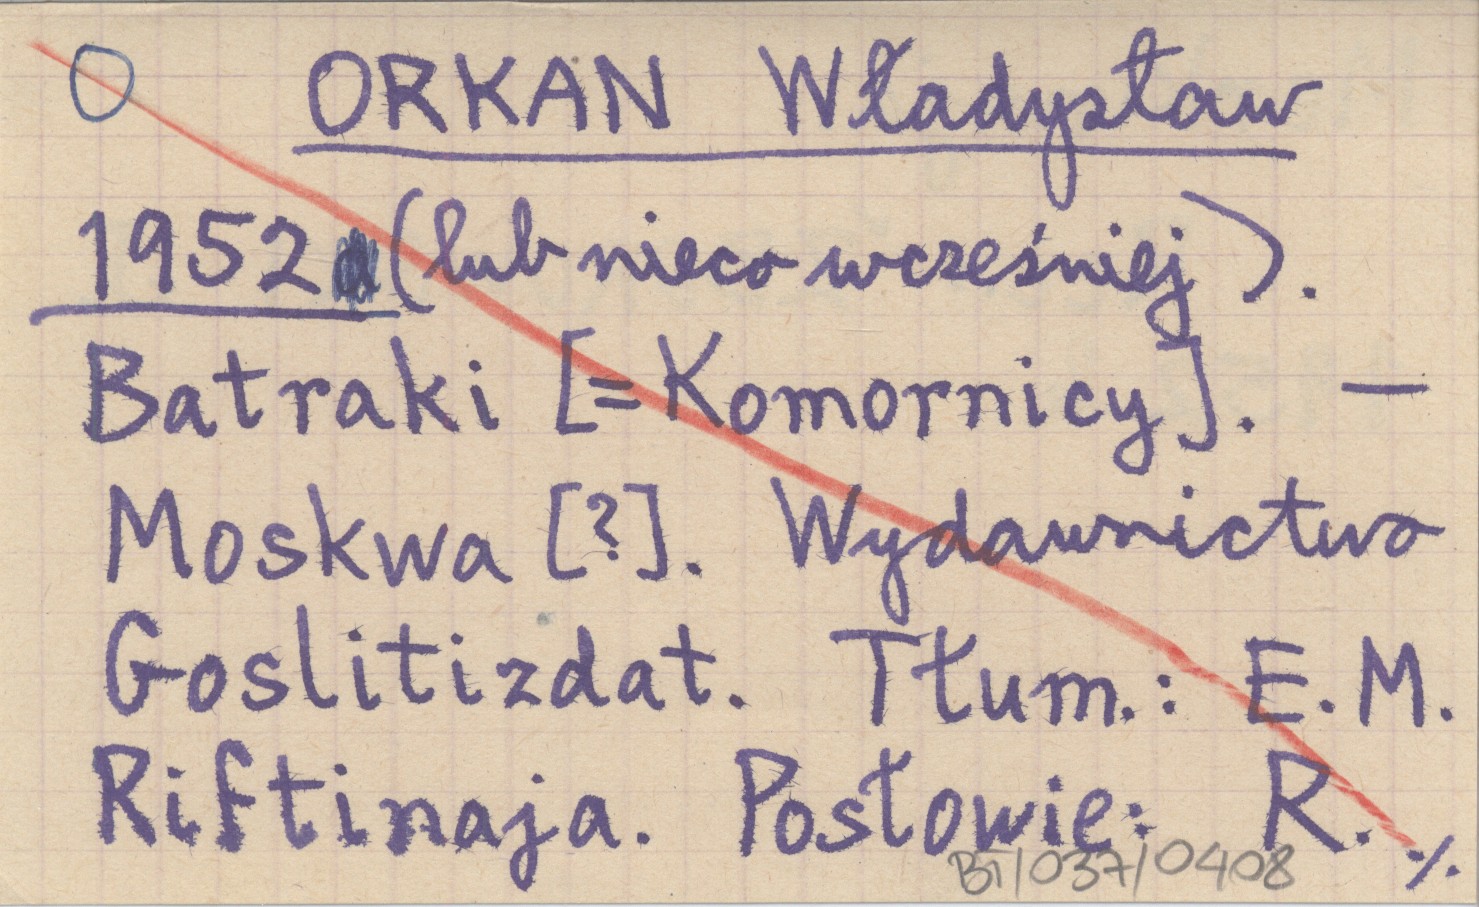 ORKAN Władysław
1952 (lub nieco wcześniej).
Batraki [= Komornicy]. —
Moskwa [?]. Wydawnictwo
Goslitizdat. Tłum.: E. M.
Riftinaja. Posłowie: R.
BT/037/0408 ./.